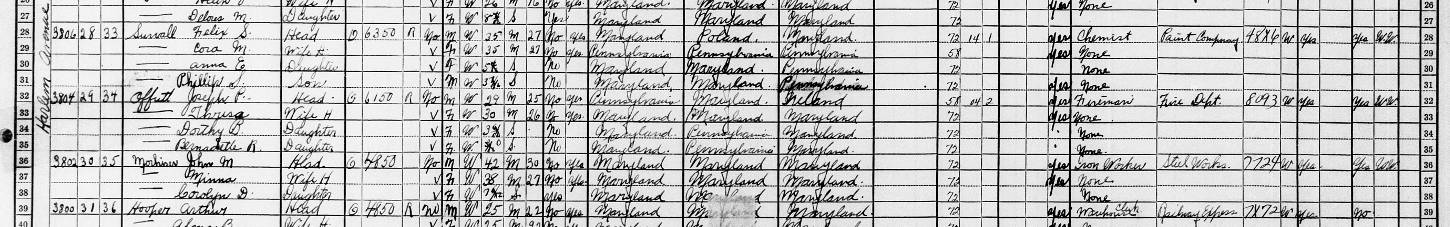 Wife H V F W 26 M 16 No Yes Maryland Maryland Maryland 72 Yes None
27 Delores M. Daughter V F W S Yes Maryland Maryland Maryland 72 27
28 3806 28 33 Survall Felix S. Head O 6350 R No M W 35 M 27 No Yes Maryland Poland 72 14 1 Yes Chemist Paint Company 4876 W Yes Yes WW 28
29 Cora M. Wife H V F W 35 M 27 No Yes Pennsylvania Pennsylvania Pennsylvania 58 Yes None 29
30 Anna E. Daughter V F W S No Maryland Maryland Pennsylvania 72 None 30
31 Phillip S. Son V M W S No Maryland Maryland Pennsylvania 72 Yes None 31
32 3804 29 34 Offutt Joseph P. Head O 6150 R No M W 29 M 25 No Yes Pennsylvania Maryland Ireland 58 04 2 Yes Fireman Fire Dept. 8093 W Yes Yes WW 32
33 Theresa Wife H V F W 30 M 26 No Yes Maryland Maryland Maryland 72 Yes None 33
34 Dorthy D. Daughter V F W S No Maryland Pennsylvania Maryland 72 None 34
35 Bernadette R. Daughter V F W S No Maryland Pennsylvania Maryland 72 None 35
36 3802 30 35 John M. Head O 4850 No M W 42 M 30 No Yes Maryland Maryland Maryland 72 Yes Iron Worker Steel Works 7724 W Yes Yes WW 36
37 Minna Wife H V F W 38 M 27 No Yes Maryland Maryland Maryland 72 Yes None 37
38 Carolyn D. Daughter V F W S Yes Maryland Maryland Maryland 72 None 38
39 3800 31 36 Hooper Arthur Head O 4850 R No M W 25 M 22 No Yes Maryland Maryland Maryland 72 Yes Clerk Railway Express 7X72 W Yes No 39
40 Wife H 40
Harlem Avenue